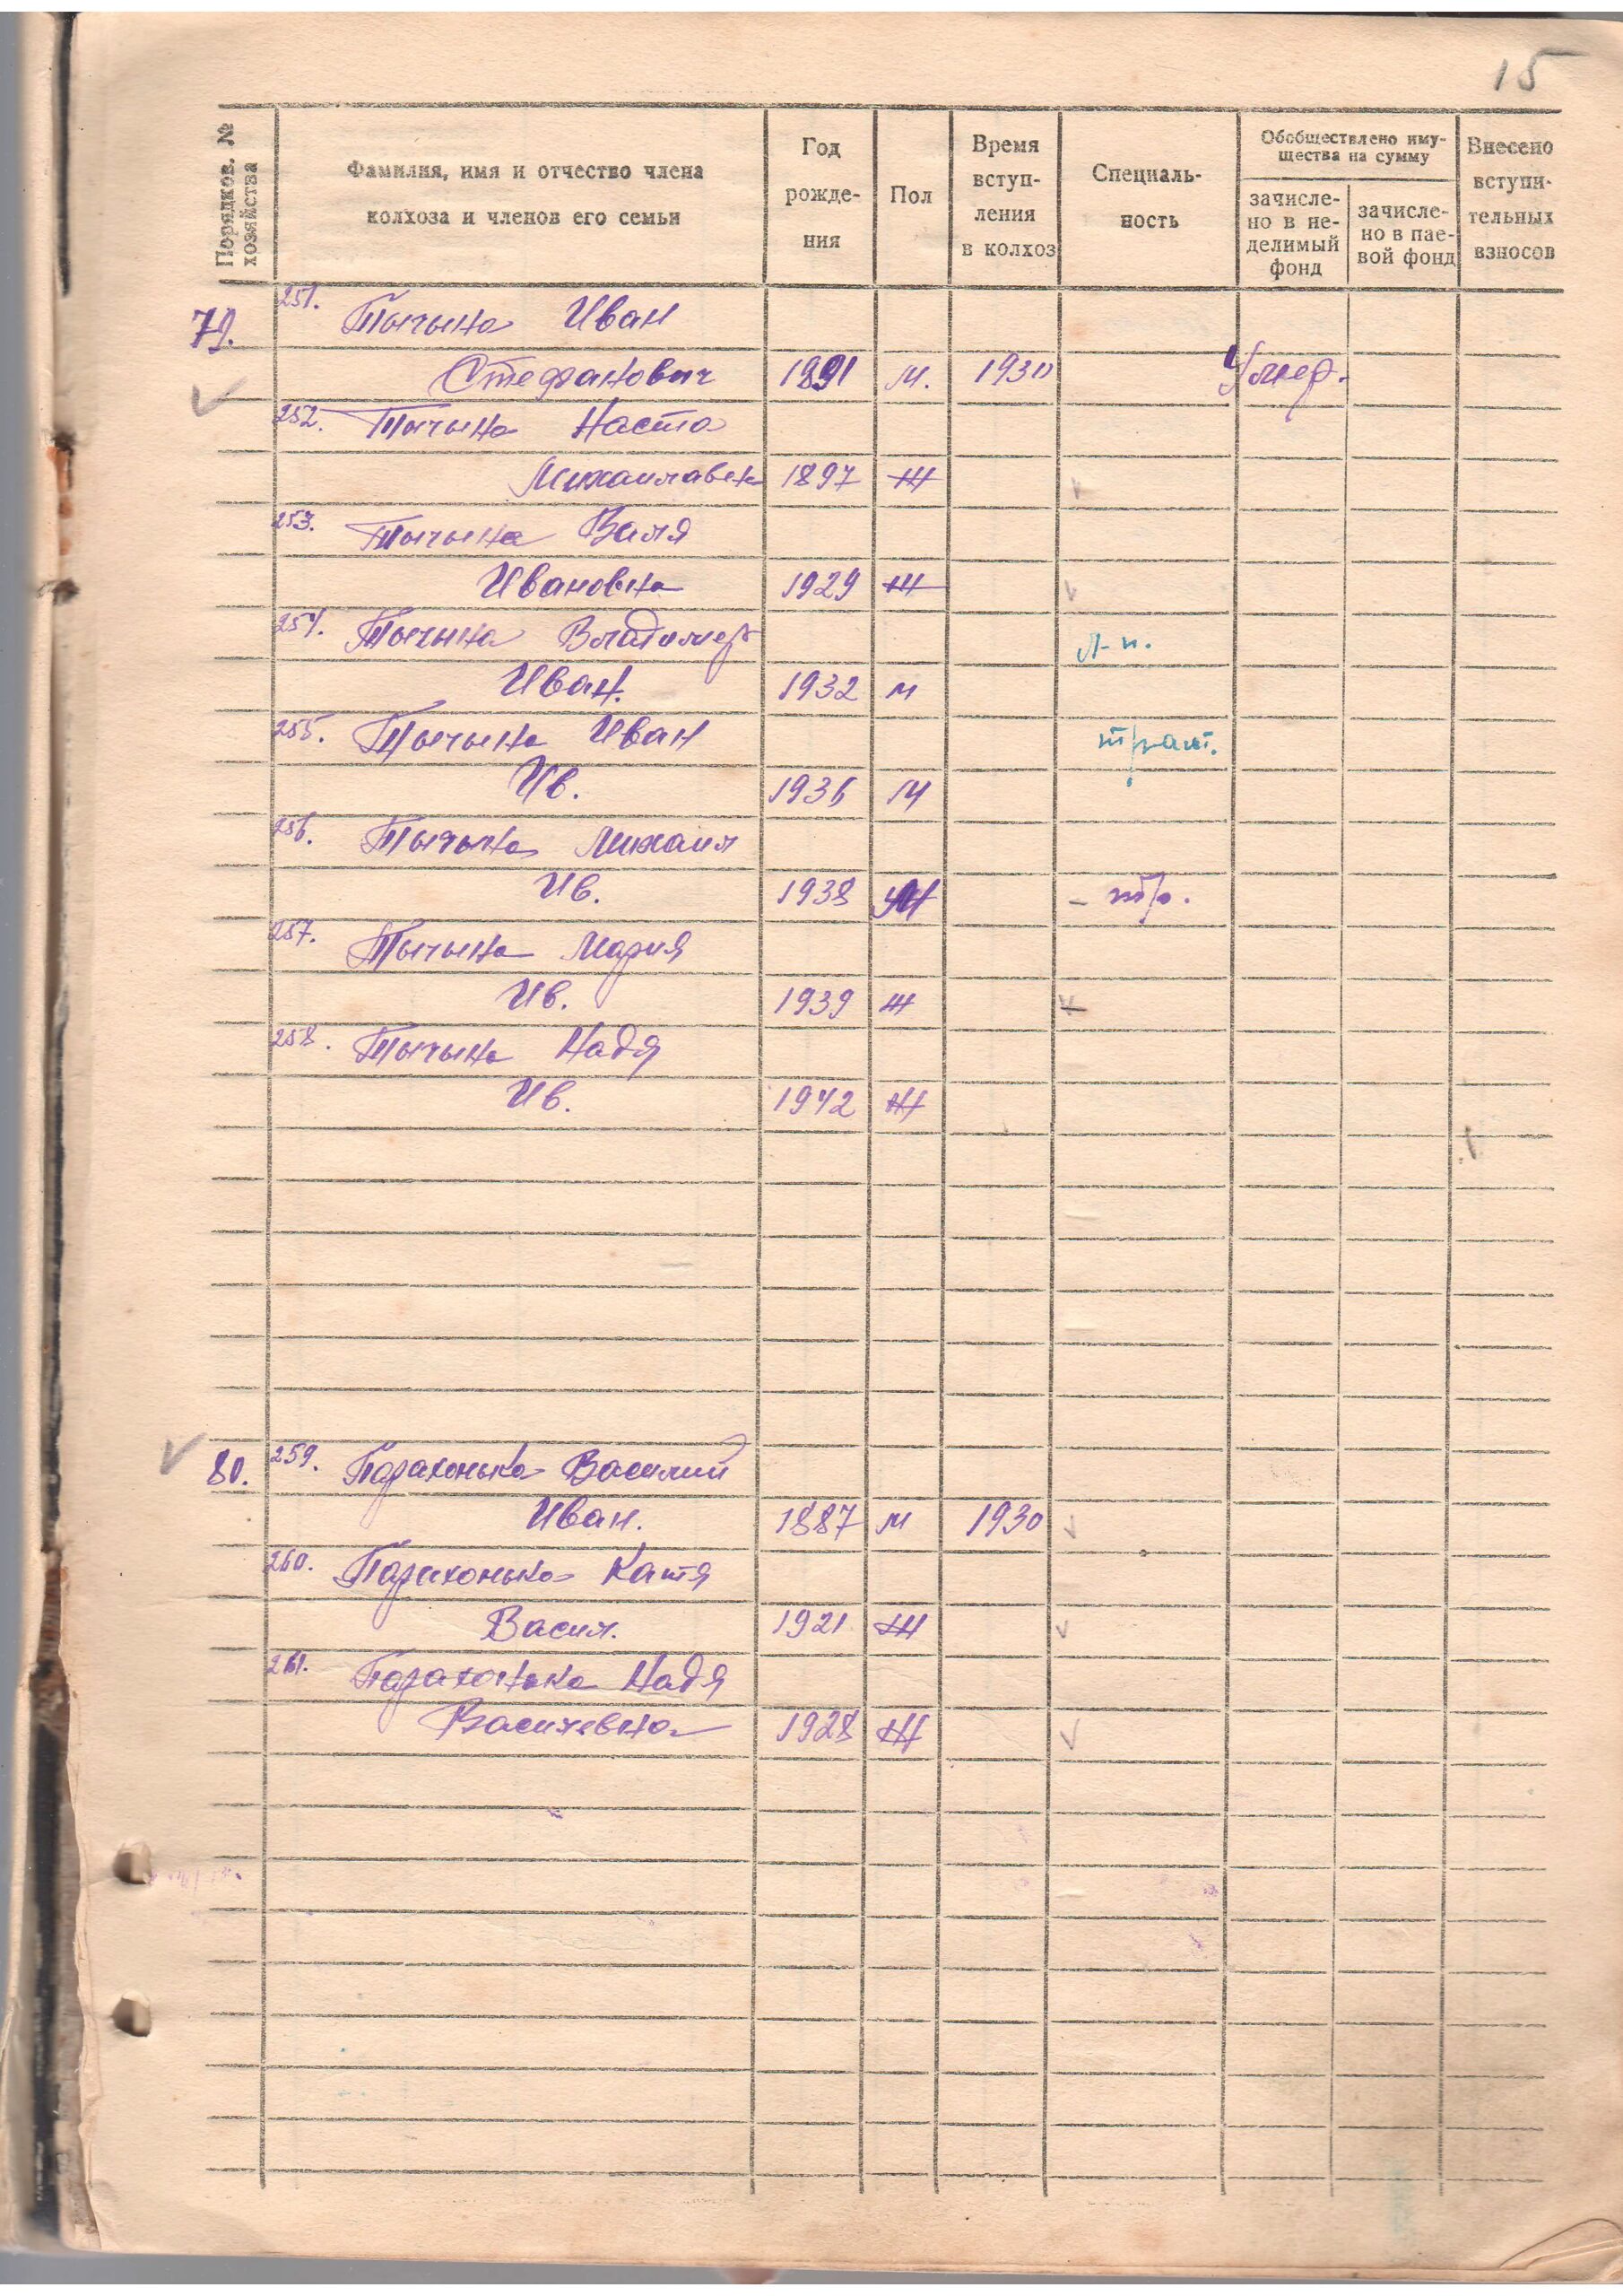 15
Порядков. № хозяйства
Фамилия, имя и отчество члена колхоза и членов его семьи
Год рождe-ния
Пол
Время вступ-ления в колхоз
Специаль-ность
Обобществлено иму-щества на сумму
зачисле-но в не-делимый фонд
зачисле-но в пае-вой фонд
Внесено вступи-тельных взносов
79. 251. Тычына Иван
Стефанович 1891 М. 1930 Умер.
252. Тычына Наста
Михайлавен 1897 Ж
253. Тычына Валя
Ивановна 1929 Ж
254. Тычына Владимер Л-н.
Иван. 1932 М
255. Тычына Иван тракт.
Ив. 1936 М
256. Тычына Михаил
Ив. 1938 М - тр.
257. Тычына Мария
Ив. 1939 Ж
258. Тычына Надя
Ив. 1942 Ж
80. 259. Парахонька Василий
Иван. 1887 М 1930
260. Парахонько Катя
Васил. 1921 Ж
261. Парахонька Надя
Василевна 1928 Ж